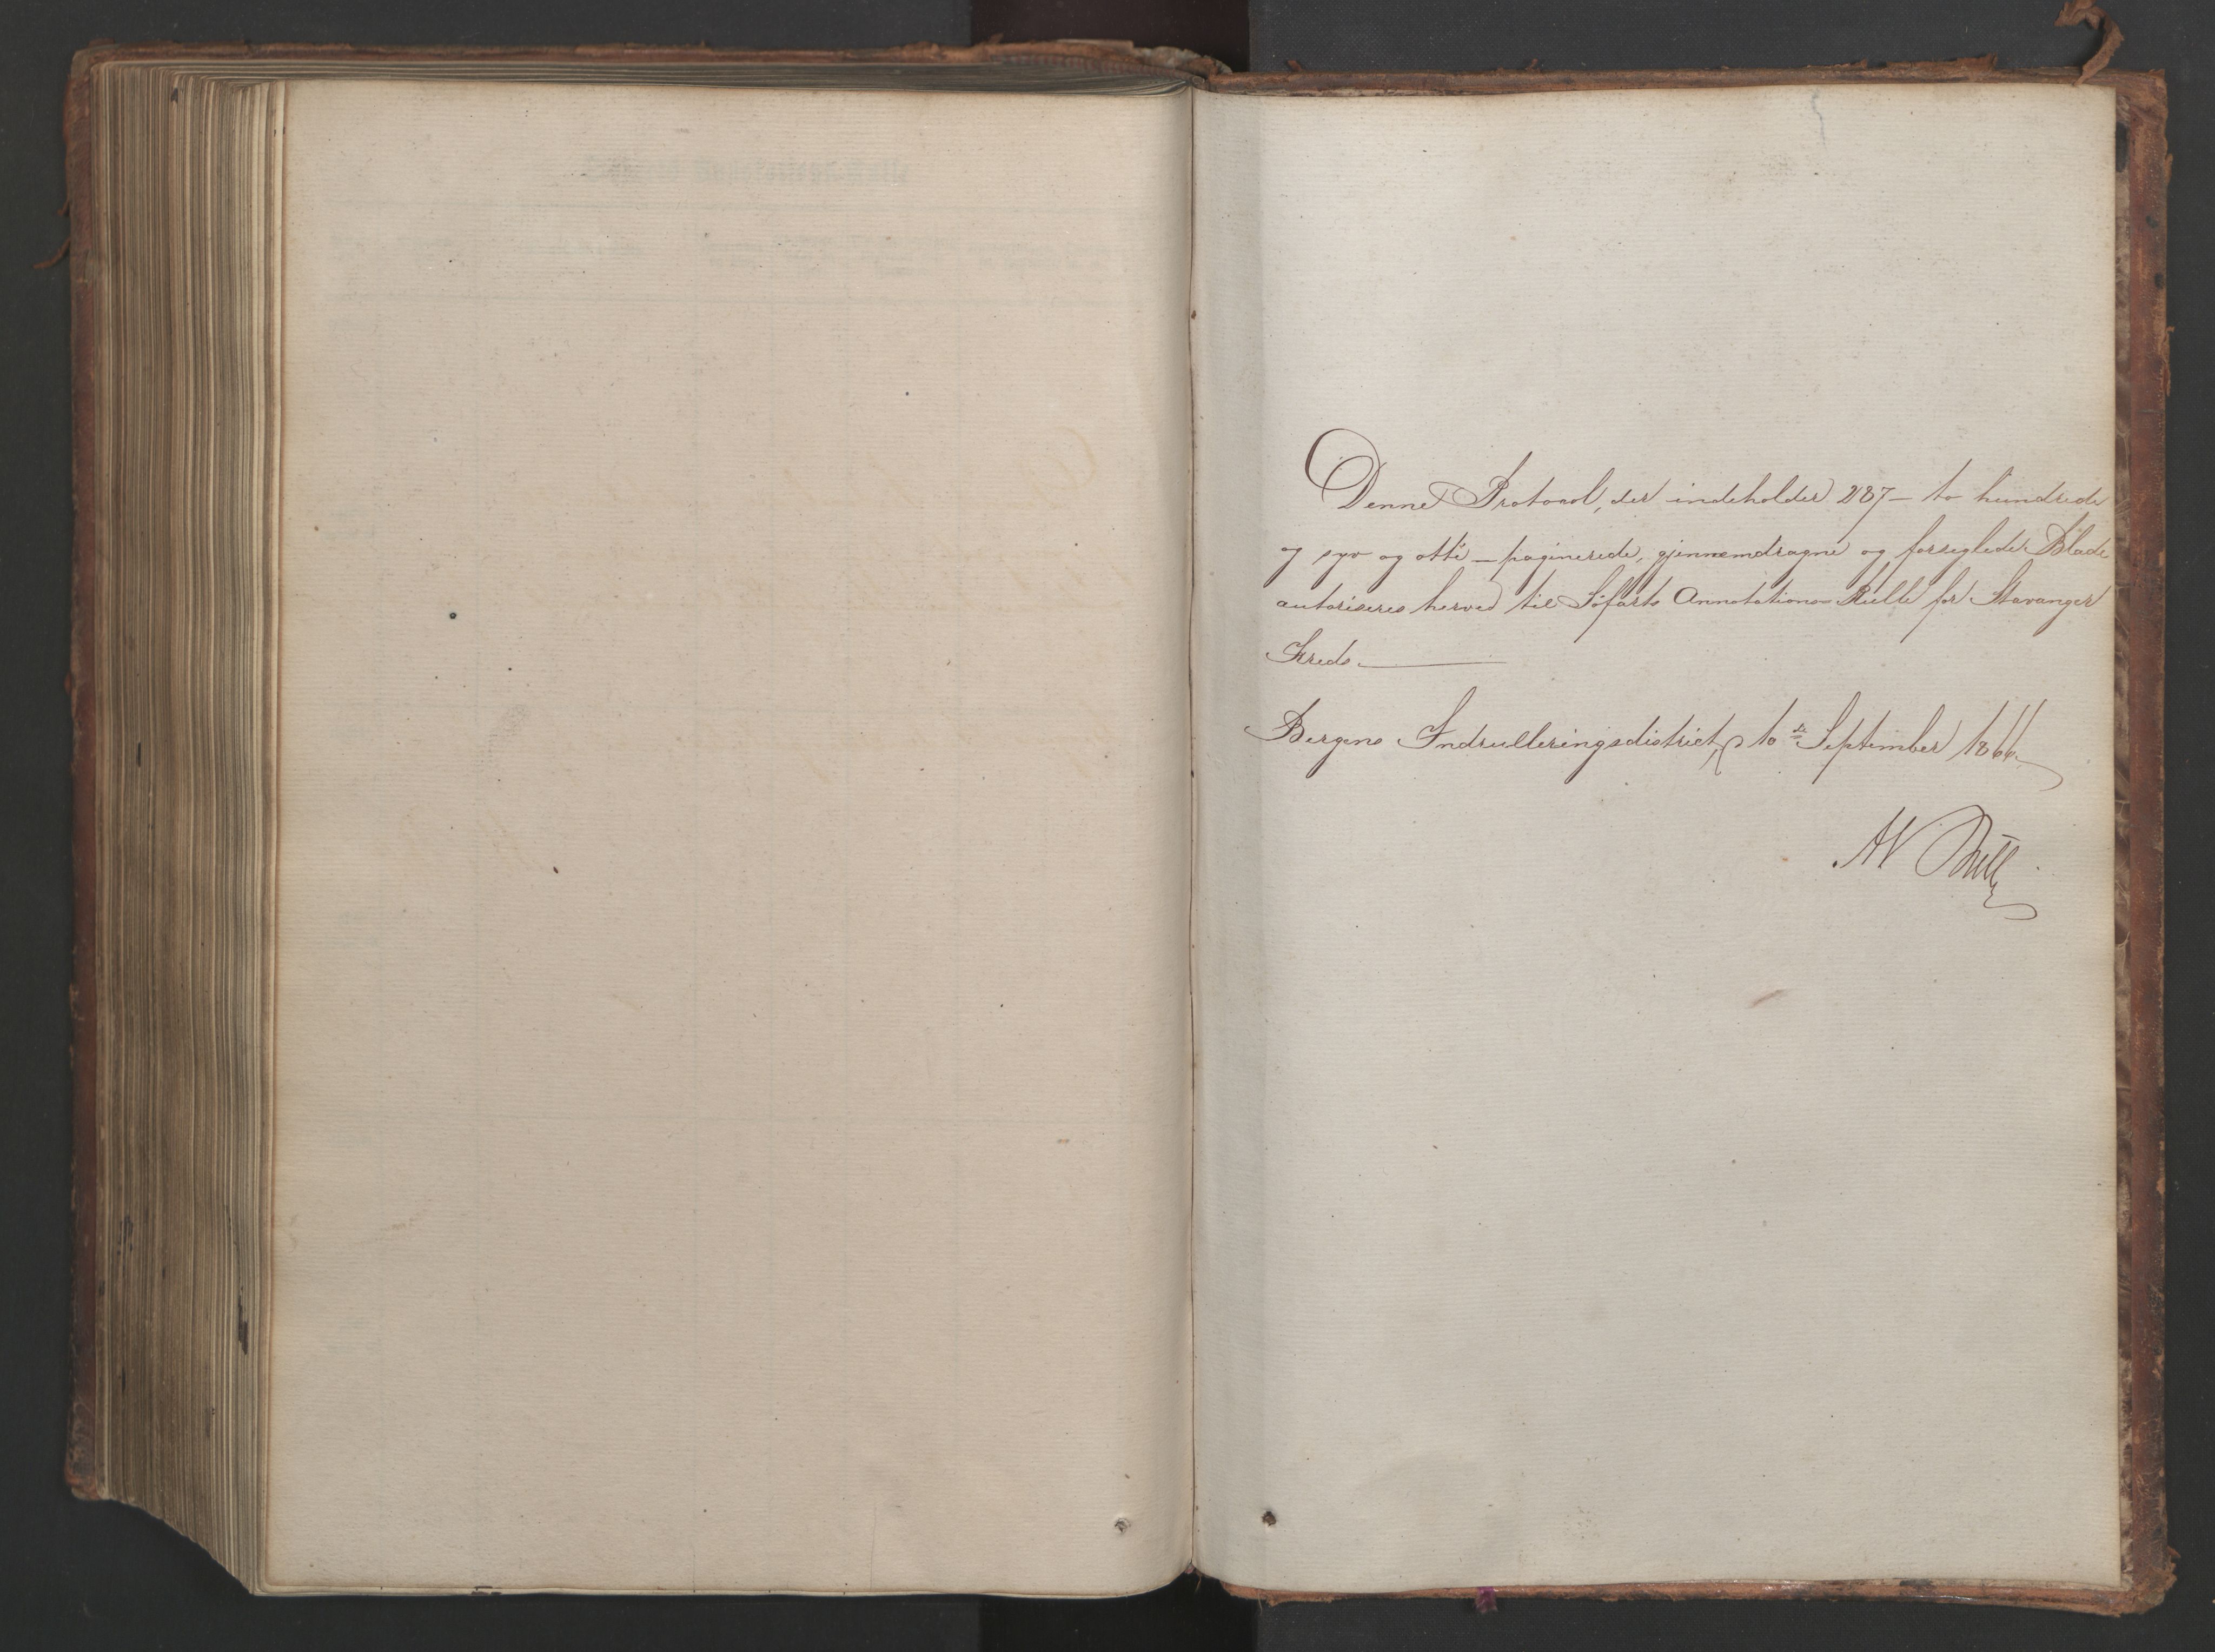 Denne Protocol, der indeholder 287 – to hundrede
og syv og otti – paginerede, gjennemdragne og forseglede Blade
autoriseres herved til Søfarts Annotations Rulle for Stavanger
Kreds.
Bergens Indrulleringsdistrict, 10de September 1866.